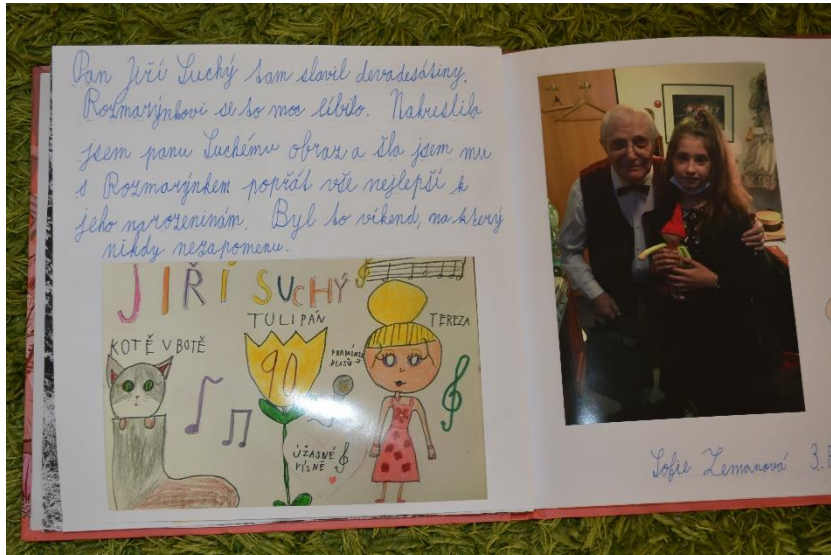 Pan Jiří Suchý tam slavil devadesátiny.
Rozmarýnkovi se to moc líbilo. Nakreslila
jsem panu Suchému obraz a šla jsem mu
s Rozmarýnkem popřát vše nejlepší k
jeho narozeninám. Byl to víkend, na který
nikdy nezapomenu.
JIŘÍ SUCHÝ
TULIPÁN
TEREZA
KOTĚ V BOTĚ
90
ÚŽASNÉ
PÍSNĚ
Sofie Zemanová 3.